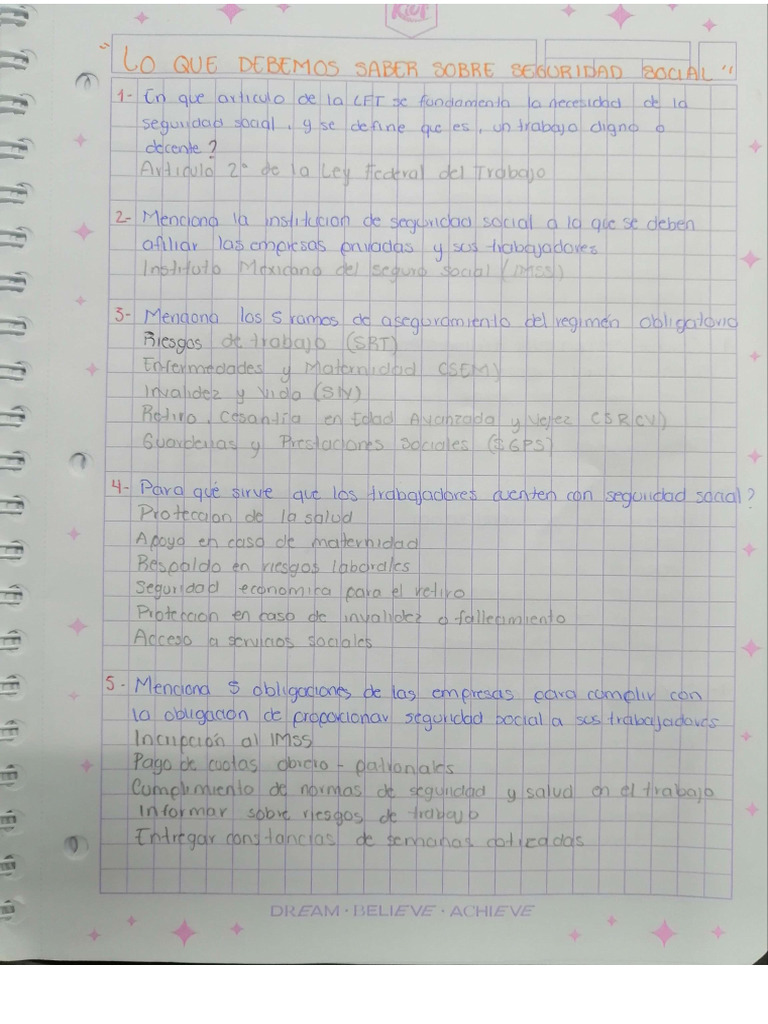 Kiut
"LO QUE DEBEMOS SABER SOBRE SEGURIDAD SOCIAL"
1- En que articulo de la LFT se fundamenta la necesidad de la
seguridad social, y se define que es, un trabajo digno o
decente?
Articulo 2° de la Ley Federal del Trabajo
2- Menciona la institucion de seguridad social a la que se deben
afiliar las empresas privadas y sus trabajadores
Instituto Mexicano del seguro social (IMSS)
3- Menciona los 5 ramos de aseguramiento del regimén obligatorio
Riesgos de trabajo (SRT)
Enfermedades y Maternidad (SEM)
Invalidez y Vida (SIV)
Retiro, Cesantía en Edad Avanzada y Vejez (SRCV)
Guarderias y Prestaciones Sociales (SGPS)
4- Para qué sirve que los trabajadores cuenten con seguridad social?
Proteccion de la salud
Apoyo en caso de maternidad
Respaldo en riesgos laborales
Seguridad economica para el retiro
Proteccion en caso de invalidez o fallecimiento
Acceso a servicios sociales
5- Menciona 5 obligaciones de las empresas para cumplir con
la obligacion de proporcionar seguridad social a sus trabajadores
Incripción al IMSS
Pago de cuotas obrero - patronales
Cumplimiento de normas de seguridad y salud en el trabajo
Informar sobre riesgos de trabajo
Entregar constancias de semanas cotizadas
DREAM · BELIEVE · ACHIEVE